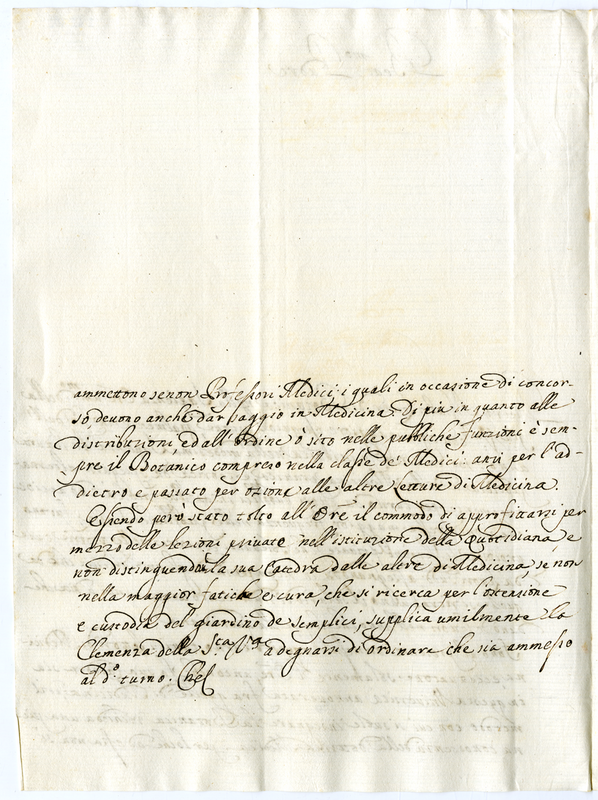 ammettono se non Professori Medici, i quali in occasione di concor-
so devono anche dar saggio in Medicina. Di più in quanto alle
distribuzioni, ed all'ordine ò sito nelle pubbliche funzioni è sem-
pre il Botanico compreso nella classe de' Medici. anzi per l'ad-
dietro è passato per ozione alle altre letture di Medicina.
Essendo però stato tolto all'Ore il commodo di approfittarsi per
mezzo delle lezioni private nell'istituzione della Quotidiana, e
non distinguendosi la sua Catedra dalle altre di Medicina, se non
nella maggior fatiche e cura, che si ricerca per l'ostensione
e custodia del giardino de semplici, supplica umilmente la
Clemenza della Sta Vra a degnarsi di ordinare che sia ammesso
al do turno. Che